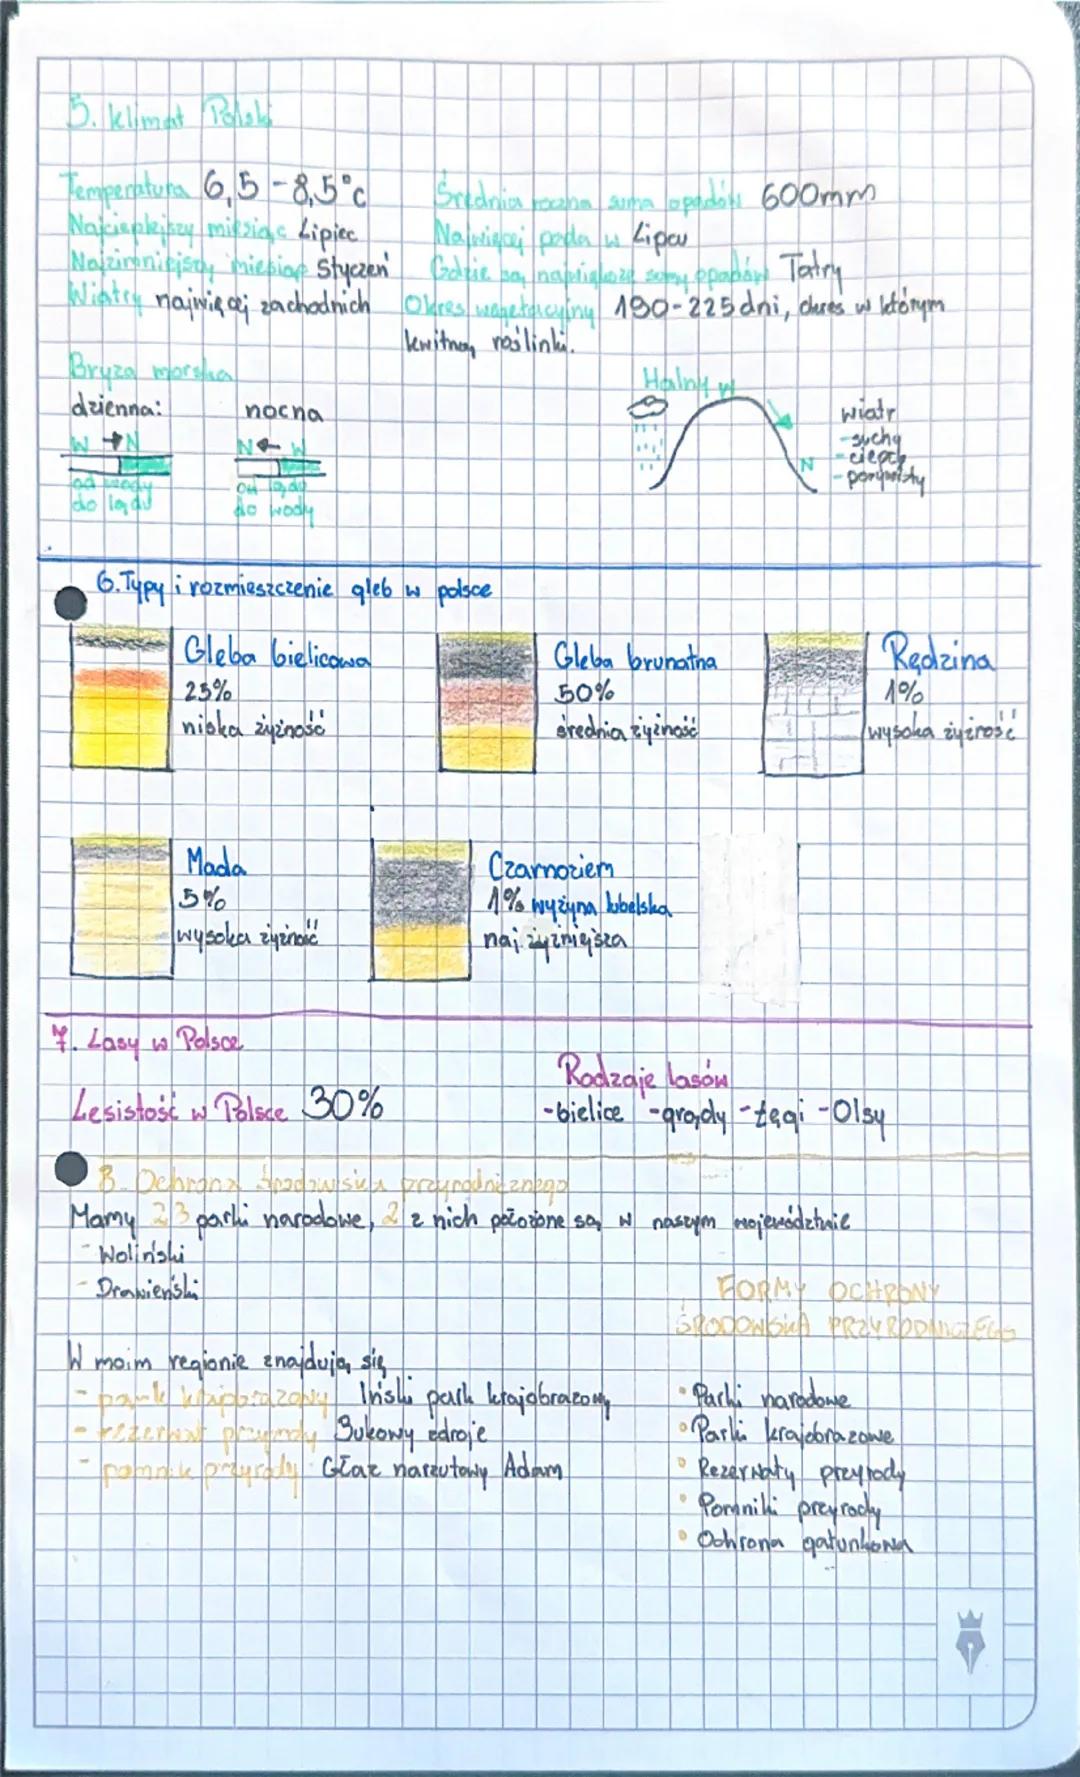 5. klimat Polski
Temperatura 6,5 - 8,5°c
Najcieplejszy miesiąc Lipiec
Najzimniejszy miesiąc Styczeń
Wiatry najwięcej zachodnich
Średnia roczna suma opadów 600mm
Najwięcej pada w Lipcu
Gdzie są największe sumy opadów Tatry
Okres wegetacyjny 190-225 dni, okres w którym
kwitną roślinki.
Bryza morska
dzienna:
W → N
od wody
do lądu
nocna
N ← W
od lądu
do wody
Halny W
N
wiatr
- suchy
- ciepły
- porywisty
6. Typy i rozmieszczenie gleb w polsce
Gleba bielicowa
25%
niska żyzność
Gleba brunatna
50%
średnia żyzność
Rędzina
1%
wysoka żyzność
Mada
5%
wysoka żyzność
Czarnoziem
1% wyżyna lubelska
naj żyzniejsza
7. Lasy w Polsce
Lesistość w Polsce 30%
Rodzaje lasów
- bielice - grądy - Łęgi - Olsy
8. Ochrona środowiska przyrodniczego
Mamy 23 parki narodowe, 2 z nich położone są w naszym województwie
- Woliński
- Drawieński
W moim regionie znajdują się
- park krajobrazowy Iński park krajobrazowy
- rezerwat przyrody Bukowy zdroje
- pomnik przyrody Głaz narzutowy Adam
FORMY OCHRONY
ŚRODOWSKA PRZYRODNICZEGO
• Parki narodowe
• Parki krajobrazowe
• Rezerwaty przyrody
• Pomniki przyrody
• Ochrona gatunkowa